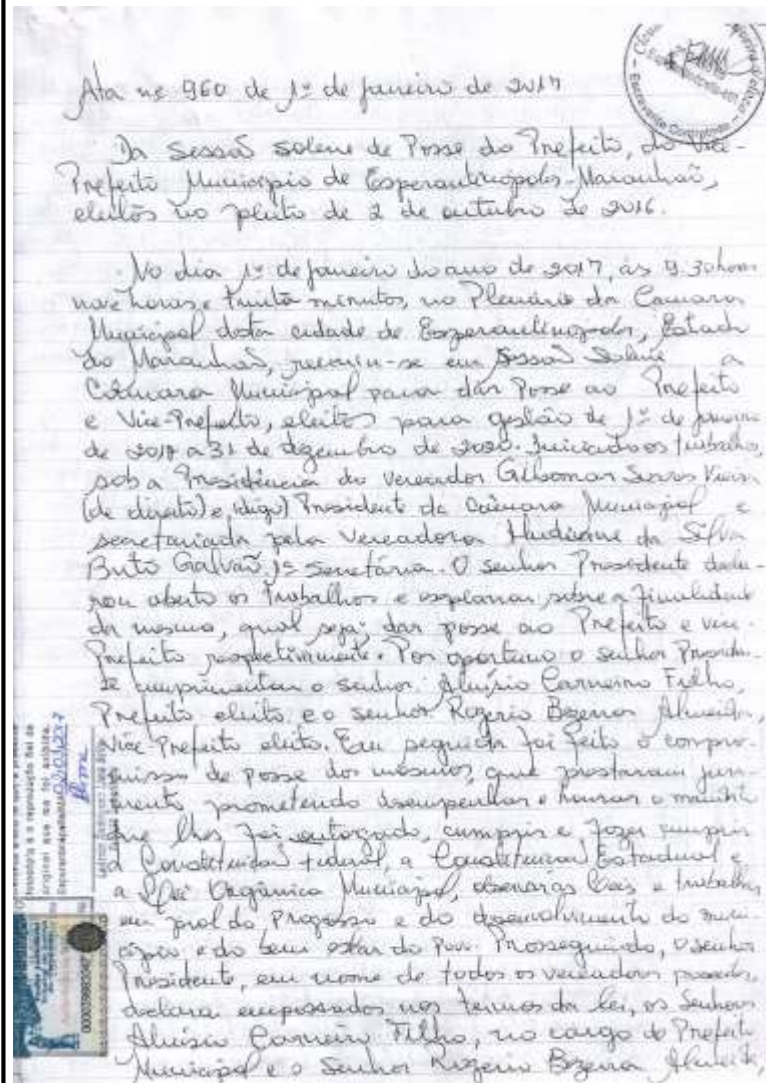 Ata nº 960 de 1º de janeiro de 2017
Da Sessão Solene de Posse do Prefeito, do Vice-
Prefeito Município de Esperantinópolis-Maranhão,
eleitos no pleito de 2 de outubro de 2016.
No dia 1º de janeiro do ano de 2017, às 9:30 horas
nove horas e trinta minutos, no Plenário da Câmara
Municipal desta cidade de Esperantinópolis, Estado
do Maranhão, reuniu-se em Sessão Solene a
Câmara Municipal para dar Posse ao Prefeito
e Vice-Prefeito, eleitos para gestão de 1º de janeiro
de 2017 a 31 de dezembro de 2020. Iniciado os trabalhos,
sob a Presidência do vereador Gilsomar Vieira
(de direito) e (digo) Presidente da Câmara Municipal e
secretariada pela Vereadora da Silva
Brito Galvão, 1ª Secretária. O senhor Presidente decla-
rou aberto os trabalhos e explanou sobre a finalidade
da mesma, qual seja; dar posse ao Prefeito e vice-
Prefeito respectivamente. Por oportuno o senhor Presiden-
te cumprimentou o senhor Aluísio Carneiro Filho,
Prefeito eleito e o senhor Rogerio Bezerra Almeida,
Vice-Prefeito eleito. Em seguida foi feito o compro-
misso de posse dos mesmos, que prestaram jura-
mento prometendo desempenhar e honrar o mandato
que lhes foi outorgado, cumprir e fazer cumprir
a Constituição Federal, a Constituição Estadual e
a Lei Orgânica Municipal, observar as leis e trabalhar
em prol do Progresso e do desenvolvimento do muni-
cípio e do bem estar do Povo. Prosseguindo, o senhor
Presidente, em nome de todos os vereadores presentes,
declara empossados nos termos da lei, os Senhores
Aluísio Carneiro Filho, no cargo de Prefeito
Municipal e o Senhor Rogerio Bezerra Almeida,